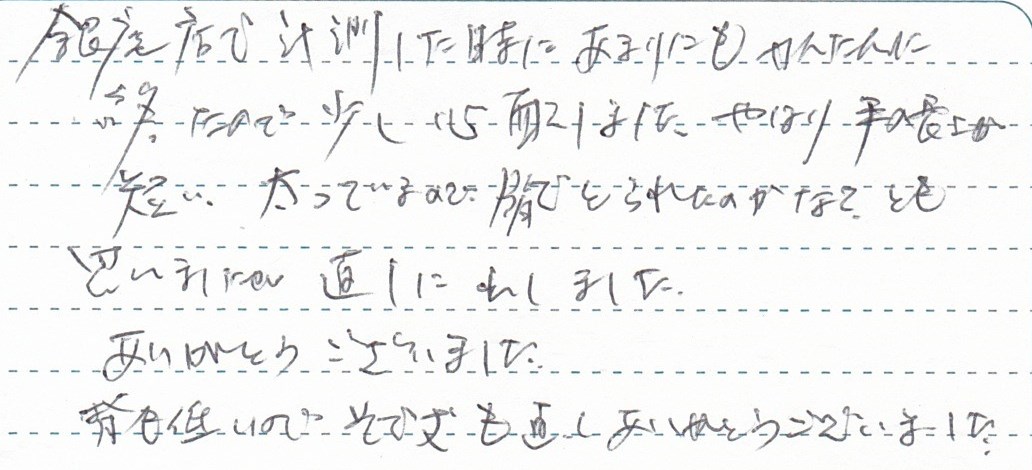 銀座店で計測した時にあまりにもかんたんに
終ったので少し心配しました。やはり手の長さが
短い。太っているので幅でとられたのかなぁ?とも
思いましたが直しにだしました。
ありがとうございました。
背も低いのでそで丈も直しありがとうございました。